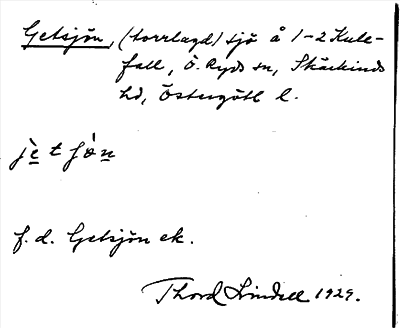 Getsjön, (torrlagd) sjö å 1-2 Kule-
fall, Ö. Ryds sn, Skärkinds
hd, Östergötl l.
jètʃòn
f. d. Getsjön ek.
Thord Lindell 1929.